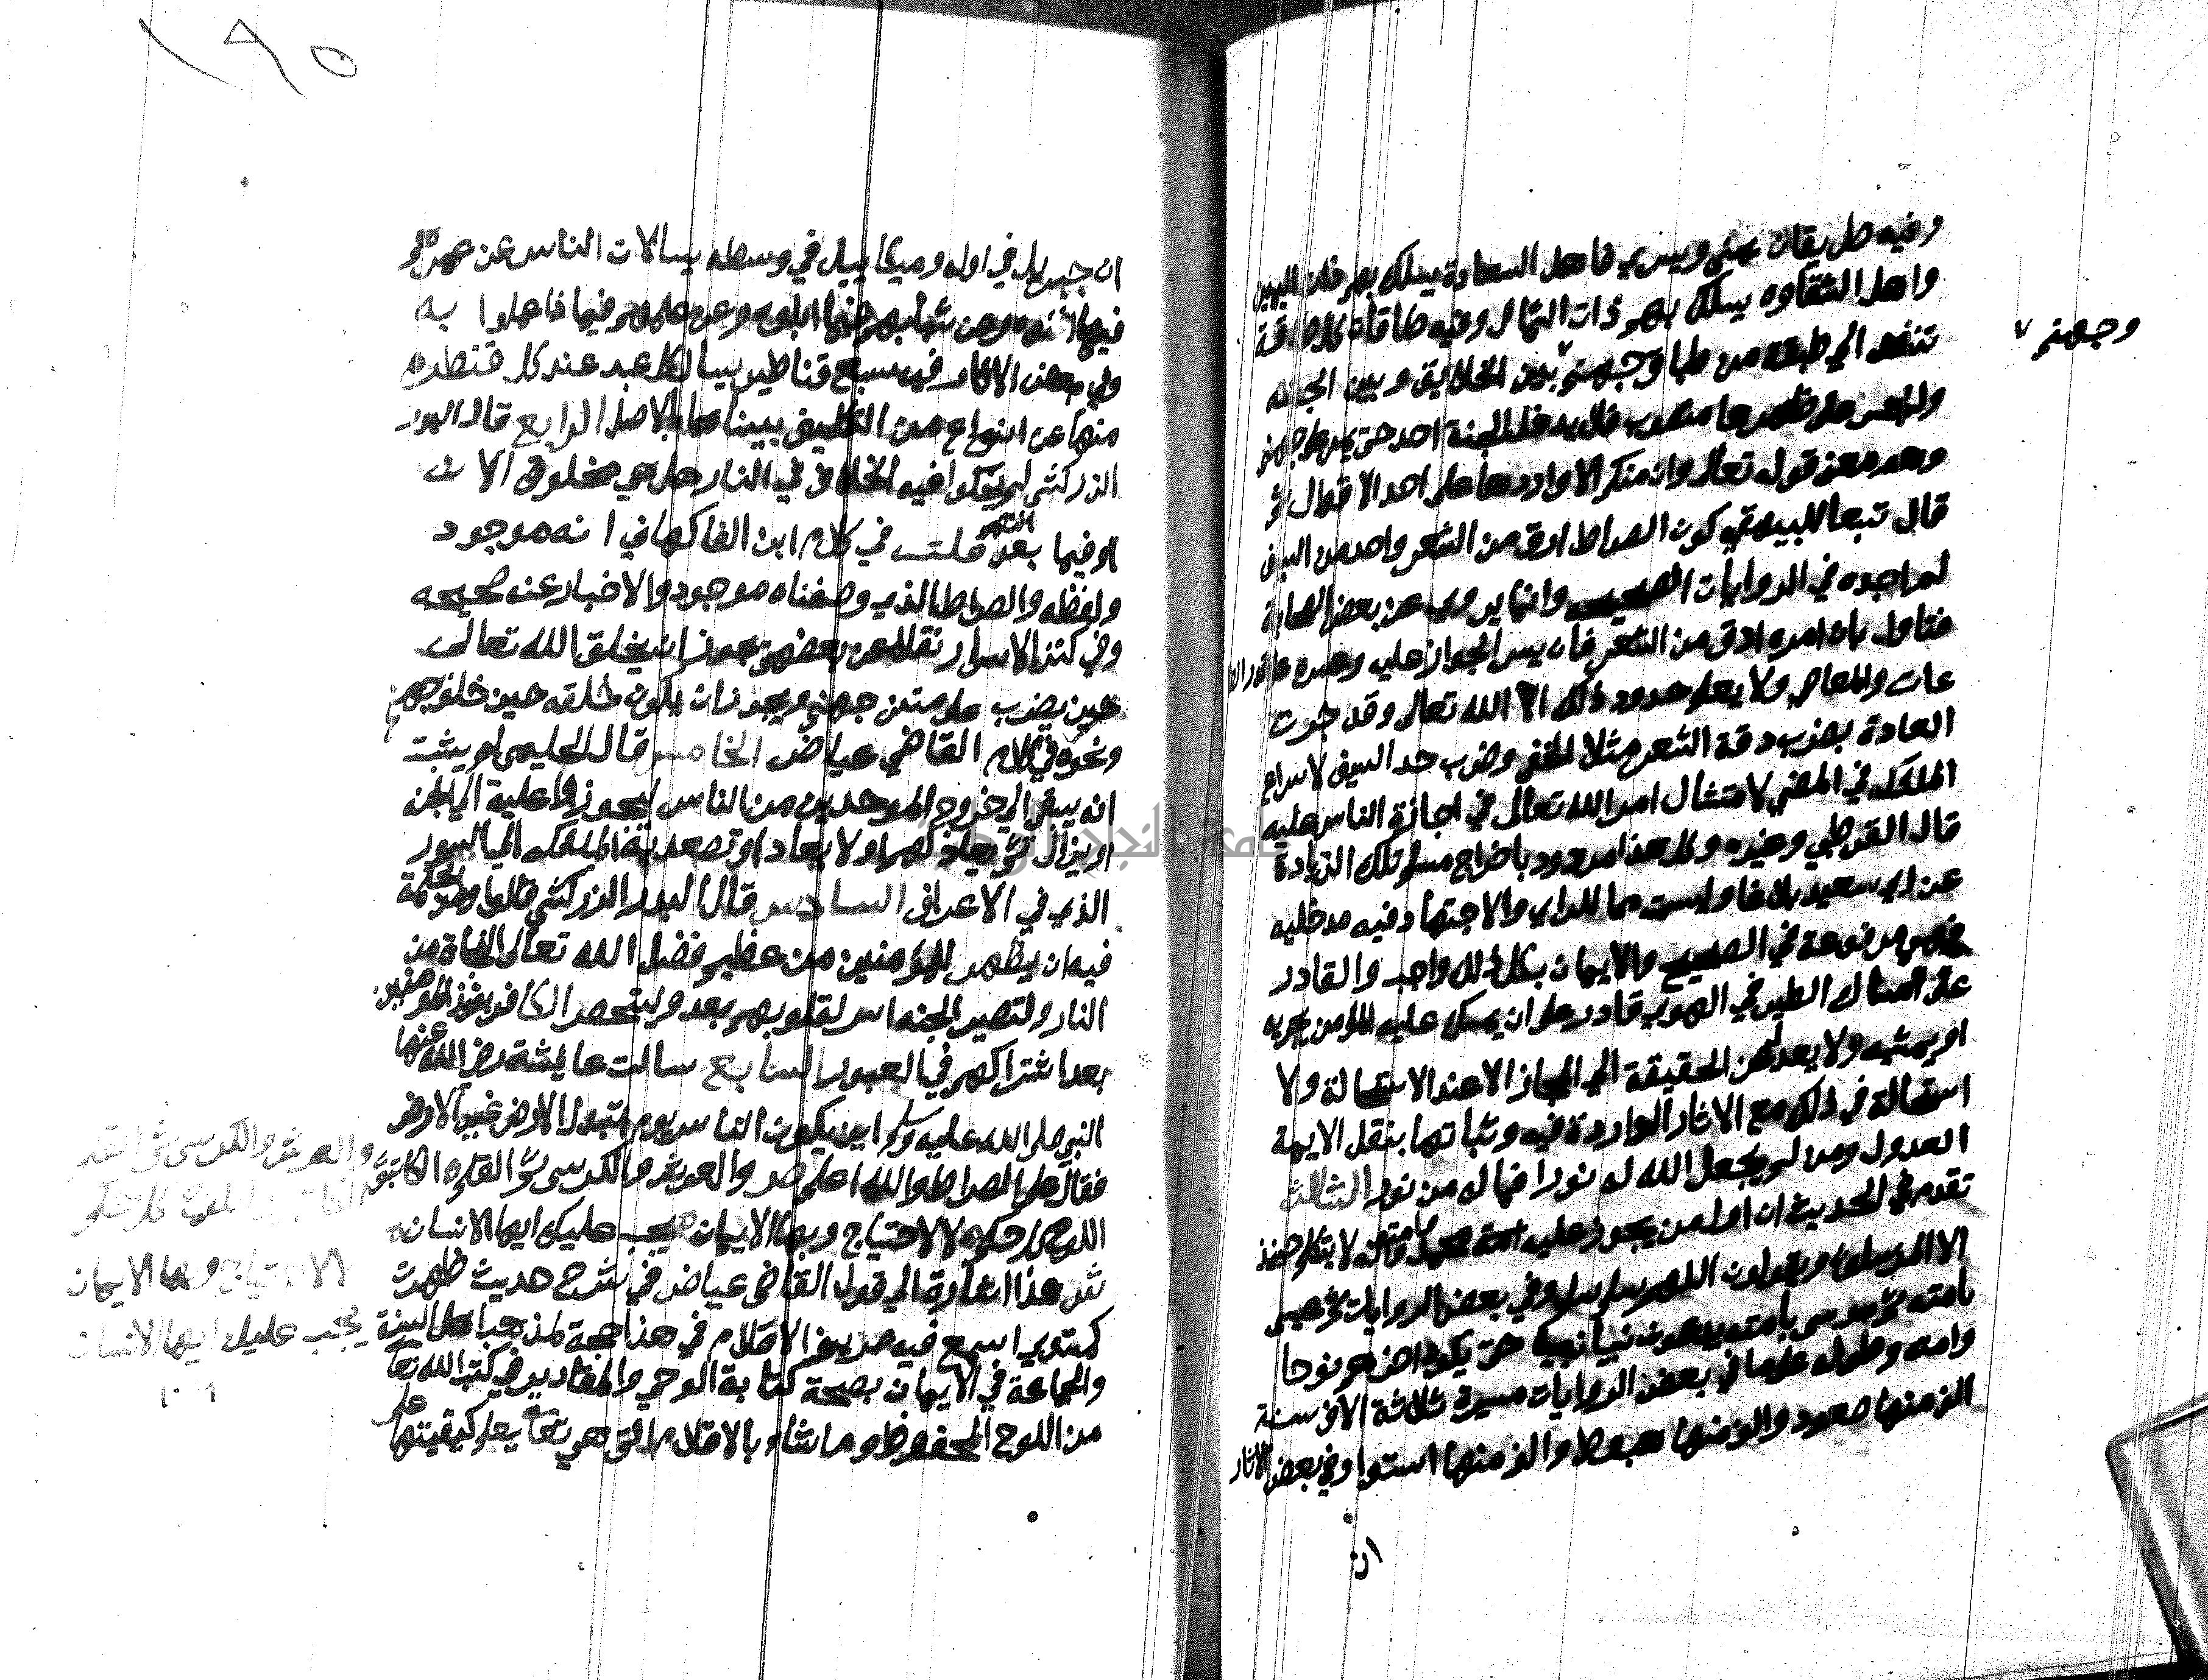 وفيه طريقان يمنى ويسرى فاهل السعادة يسلك بهم ذات اليمين
واهل الشقاوه يسلك بهم ذات الشمال وفيه طاقات كل طاقة
تنفذ الي طبقة من طباق جهنم بين الخلايق وبين الجنه
وجهنم
والجسر على ظهرها منصوب فلا يدخل الجنة احد حتى يمر على جهنم
وهو معنى قوله تعالى وان منكم الا واردها على احد الاقوال ثم
قال تبعا للبيهقي كون الصراط ادق من الشعر واحد من السيف
لم اجده في الروايات الصحيحه وانما يروى عن بعض الصحابة
فتاول بان امره ادق من الشعر فان يسر الجواز عليه وعسره على قدر الطا
عات والمعاصي ولا يعلم حدود ذلك الا الله تعالى وقد جرت
العادة بضرب دقة الشعر مثلا للخفي وضرب حد السيف لاسراع
الملئكه في المضي لامتثال امر الله تعالى في اجازة الناس عليه
قال القرطبي وغيره وكل هذا مردود باخراج مسلم تلك الزيادة
عن ابي سعيد بلاغا وليست مما للراي والاجتهاد فيه مدخليه
فهي مرفوعة في الصحيح والايمان بكل ذلك واجب والقادر
على امساك الطير في الهوى قادر على ان يمسك عليه المؤمن يجريه
او يمشيه ولا يعدل عن الحقيقة الي المجاز الا عند الاستحالة ولا
استحالة في ذلك مع الاثار الواردة فيه وثباتها بنقل الايمة
العدول ومن لم يجعل الله له نورا فما له من نور الثالث
تقدم في الحديث ان اول من يجوز عليه امة محمد وانه لا يتكلم حينئذ
الا المرسلون ويقولون اللهم سلم سلم وفي بعض الروايات ثم عيسى
بامته ثم موسى بامته يدعون نبيا نبيا حتى يكون اخرهم نوحا
وامته وطوله على ما في بعض الروايات مسيرة ثلاثة الاف سنة
الف منها صعود والف منها هبوط والف منها استوا وفي بعض الاثار
ان
١٩٥
ان جبريل في اوله وميكاييل في وسطه يسالان الناس عن عمرهم
فيما افنوه وعن شبابهم فيما ابلوه وعن علمهم فيما عملوا به
وفي بعض الاثار فيه سبع قناطر يسال كل عبد عند كل قنطره
منها عن انواع من التكليف بيناها بالاصل الرابع قال البدر
الزركشي لم يحكوا فيه الخلاف في النار هل هي مخلوقة الان
او فيما بعد قلت في كلام ابن الفاكهاني انه موجود
ولفظه والصراط الذي وصفناه موجود والاخبار عنه صحيحه
وفي كنز الاسرار نقلا عن بعضهم يجوز ان يخلق الله تعالى
حين يضرب على متن جهنم ويجوز ان يكون خلقه حين خلق جهنم
ونحوه في كلام القاضي عياض الخامس قال الحليمي لم يثبت
انه يبقى الي خروج الموحدين من الناس ليجوزوا عليه الي الجنه
او يزال ثم يعاد لهم او لا يعاد او تصعد به الملئكه الي السور
الذي في الاعراف السادس قال البدر الزركشي قالوا والحكمة
فيه ان يظهر للمؤمنين من عظيم فضل الله تعالى النجاة من
النار ولتصير الجنه اسر لقلوبهم بعد وليتحسر الكافر بفوز المؤمنين
بعد اشتراكهم في العبور السابع سالت عايشة رضي الله عنها
النبي صلى الله عليه وسلم اين يكون الناس يوم تبدل الارض غير الارض
فقال على الصراط والله اعلم ص والعرش والكرسي ثم القلم والكاتبون
اللوح كل حكم لا لاحتياج وبها الايمان يجب عليك ايها الانسان
ش هذا اشارة الي قول القاضي عياض في شرح حديث ظهرت
لمستوى اسمع فيه صريف الاقلام في هذا حجة لمذهب اهل السنة
والجماعة في الايمان بصحة كتابة الوحي والمقادير في كتب الله تعالى
من اللوح المحفوظ وما شاء بالاقلام التي هو تعالى يعلم كيفيتها على
والعرش والكرسي ثم القلم
لا لاحتياج وبها الايمان
يجب عليك ايها الانسان